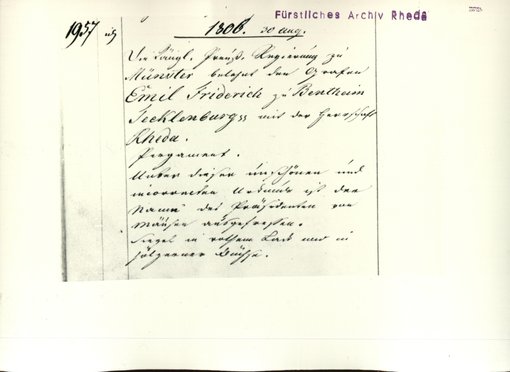 Fürstliches Archiv Rheda
1957
1806. 20 Aug.
Die Königl. Preuß. Regierung zu
Münster belehnt den Grafen
Emil Friderich zu Bentheim
Tecklenburg mit der Herrschaft
Rheda.
Pergament.
Unter dieser unschönen und
incorrecten Urkunde ist der
Name des Präsidenten von
Mäusen ausgefressen.
Siegel in rothem Lack und in
hölzerner Büchse.